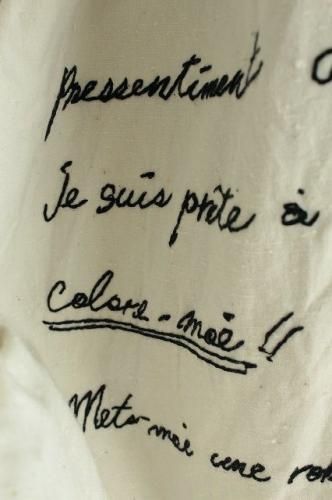 pressentiment
Je suis prête à
colore-moi !!
Mets-moi une